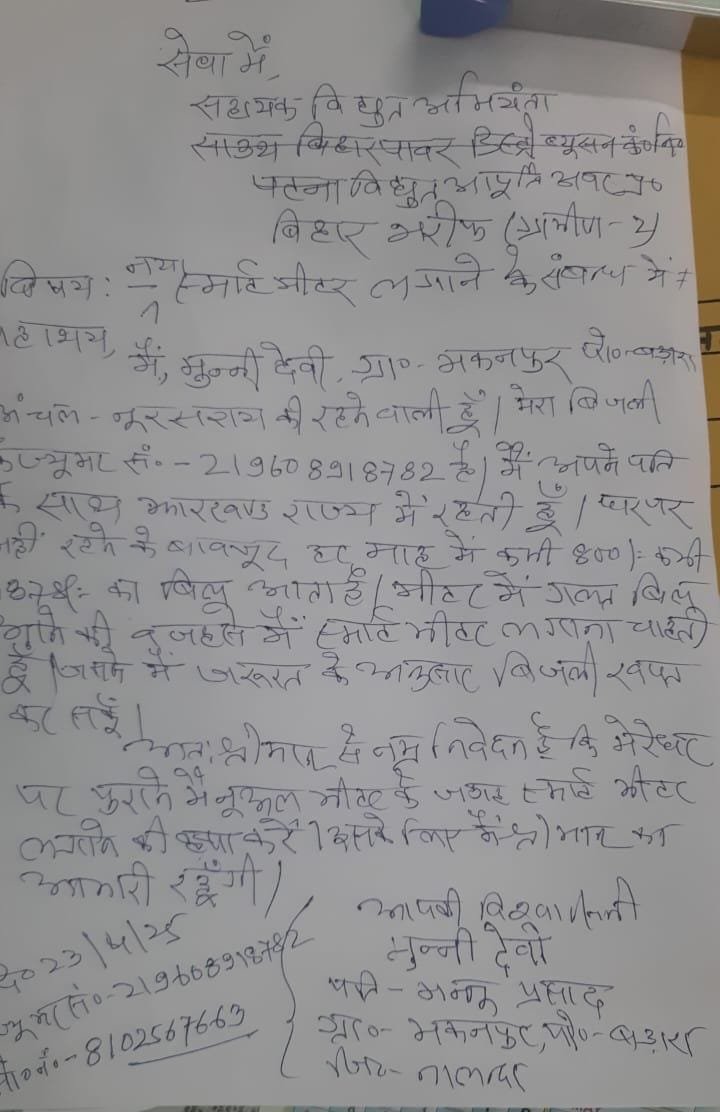 सेवा में,
सहायक विद्युत अभियंता
साउथ बिहार पावर डिस्ट्रीब्यूसन कं० लि०
पटना विद्युत आपूर्ति अवर प्र०
बिहार शरीफ (ग्रामीण-2)
विषय: नया स्मार्ट मीटर लगाने के संबन्ध में।
महाशय,
मैं, मुन्नी देवी, ग्रा०- मकनपुर पो०-बड़ारा
अंचल - नूरसराय की रहने वाली हूँ। मेरा बिजली
कंज्यूमर सं.- 219608918782 है। मैं अपने पति
के साथ झारखण्ड राज्य में रहती हूँ। घर पर
नहीं रहने के बावजूद हर माह में कभी 800/= कभी
का बिल आता है। मीटर में गलत बिल
की वजह से मैं स्मार्ट मीटर लगाना चाहती
हूँ। जिससे मैं जरूरत के अनुसार बिजली खपत
कर सकूँ।
अतः श्रीमान् से नम्र निवेदन है कि मेरे घर
पर पुराने मैनुअल मीटर के जगह स्मार्ट मीटर
लगाने की कृपा करें। इसके लिए मैं श्रीमान का
आभारी रहूँगी।
आपकी विश्वासनी
मुन्नी देवी
पति - मन्नू प्रसाद
ग्रा०- मकनपुर, पो०- बड़ारा
जि०- नालन्दा
दि० 23/4/25
कंज्यूमर सं०- 219608918782
मो० नं०- 8102567663